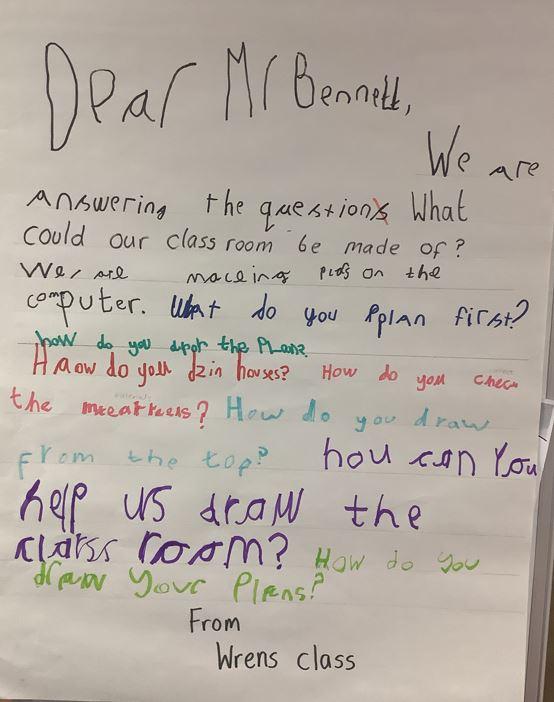 Dear Mr Bennett,
We are
answering the question What
could our class room be made of?
We are making pids on the
computer. What do you pplan first?
how do you the Plans
Haow do you dzin houses? How do you chech
the meatreels? How do you draw
from the top? hou can You
help us draw the
class room? How do you
draw your Plans?
From
Wrens class